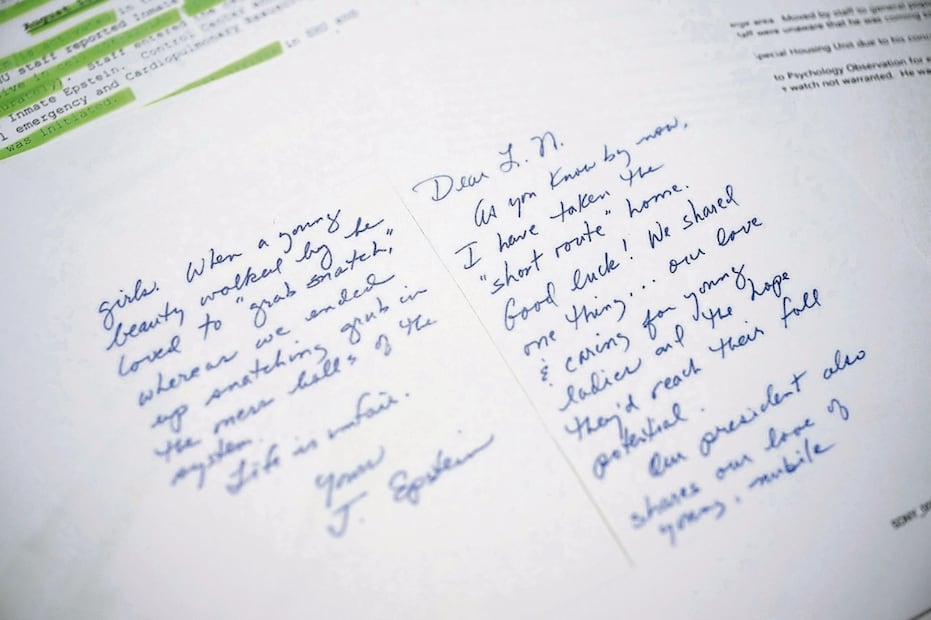 August
U staff reported inmate
staff entered the
Inmate Epstein. Control Center
l emergency and Cardiopulmonary
was initiated.
in SHU and
area. Moved by staff to general
were unaware that he was coming
pecial Housing Unit due to his
to Psychology Observation for
watch not warranted. He
Dear L. N.
As you know by now,
I have taken the
"short route" home.
Good luck! We shared
one thing... our love
& caring for young
ladies and the hope
they'd reach their full
potential.
Our president also
shares our love of
young, nubile
girls. When a young
beauty walked by he
loved to "grab snatch,"
whereas we ended
up snatching grub in
the mess halls of the
system.
Life is unfair.
Yours
J. Epstein